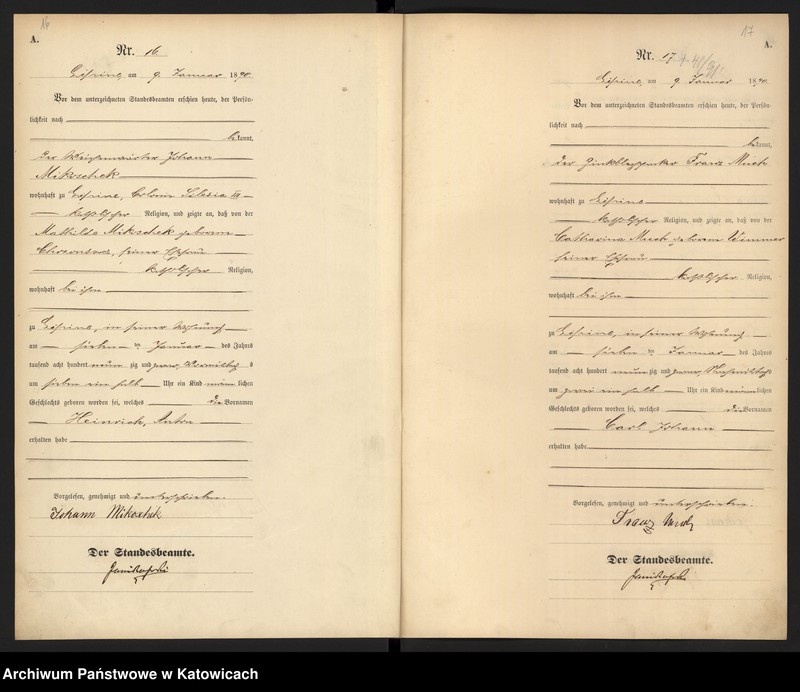 16
A.
Nr. 16
am 9. Januar 1890
Vor dem unterzeichneten Standesbeamten erschien heute, der Persön-
lichkeit nach
bekannt,
der Johann
wohnhaft zu Colonie Silesia III
katholischer Religion, und zeigte an, daß von der
Mathilde geborenen
seiner Ehefrau
katholischer Religion,
wohnhaft bei ihm
zu in seiner Wohnung
am sieben ten Januar des Jahres
tausend acht hundert neunzig und zwar Vormittags
um sieben ein halb Uhr ein Kind männlichen
Geschlechts geboren worden sei, welches die Vornamen
Heinrich, Anton
erhalten habe
Vorgelesen, genehmigt und unterschrieben.
Johann
Der Standesbeamte.
17
A.
Nr. 17
am 9. Januar 1890
Vor dem unterzeichneten Standesbeamten erschien heute, der Persön-
lichkeit nach
bekannt,
der Franz
wohnhaft zu
katholischer Religion, und zeigte an, daß von der
Catharina geborenen Wimmer
seiner Ehefrau
katholischer Religion,
wohnhaft bei ihm
zu in seiner Wohnung
am sieben ten Januar des Jahres
tausend acht hundert neunzig und zwar Nachmittags
um zwei ein halb Uhr ein Kind männlichen
Geschlechts geboren worden sei, welches die Vornamen
Carl Johann
erhalten habe
Vorgelesen, genehmigt und unterschrieben.
Franz
Der Standesbeamte.
Archiwum Państwowe w Katowicach